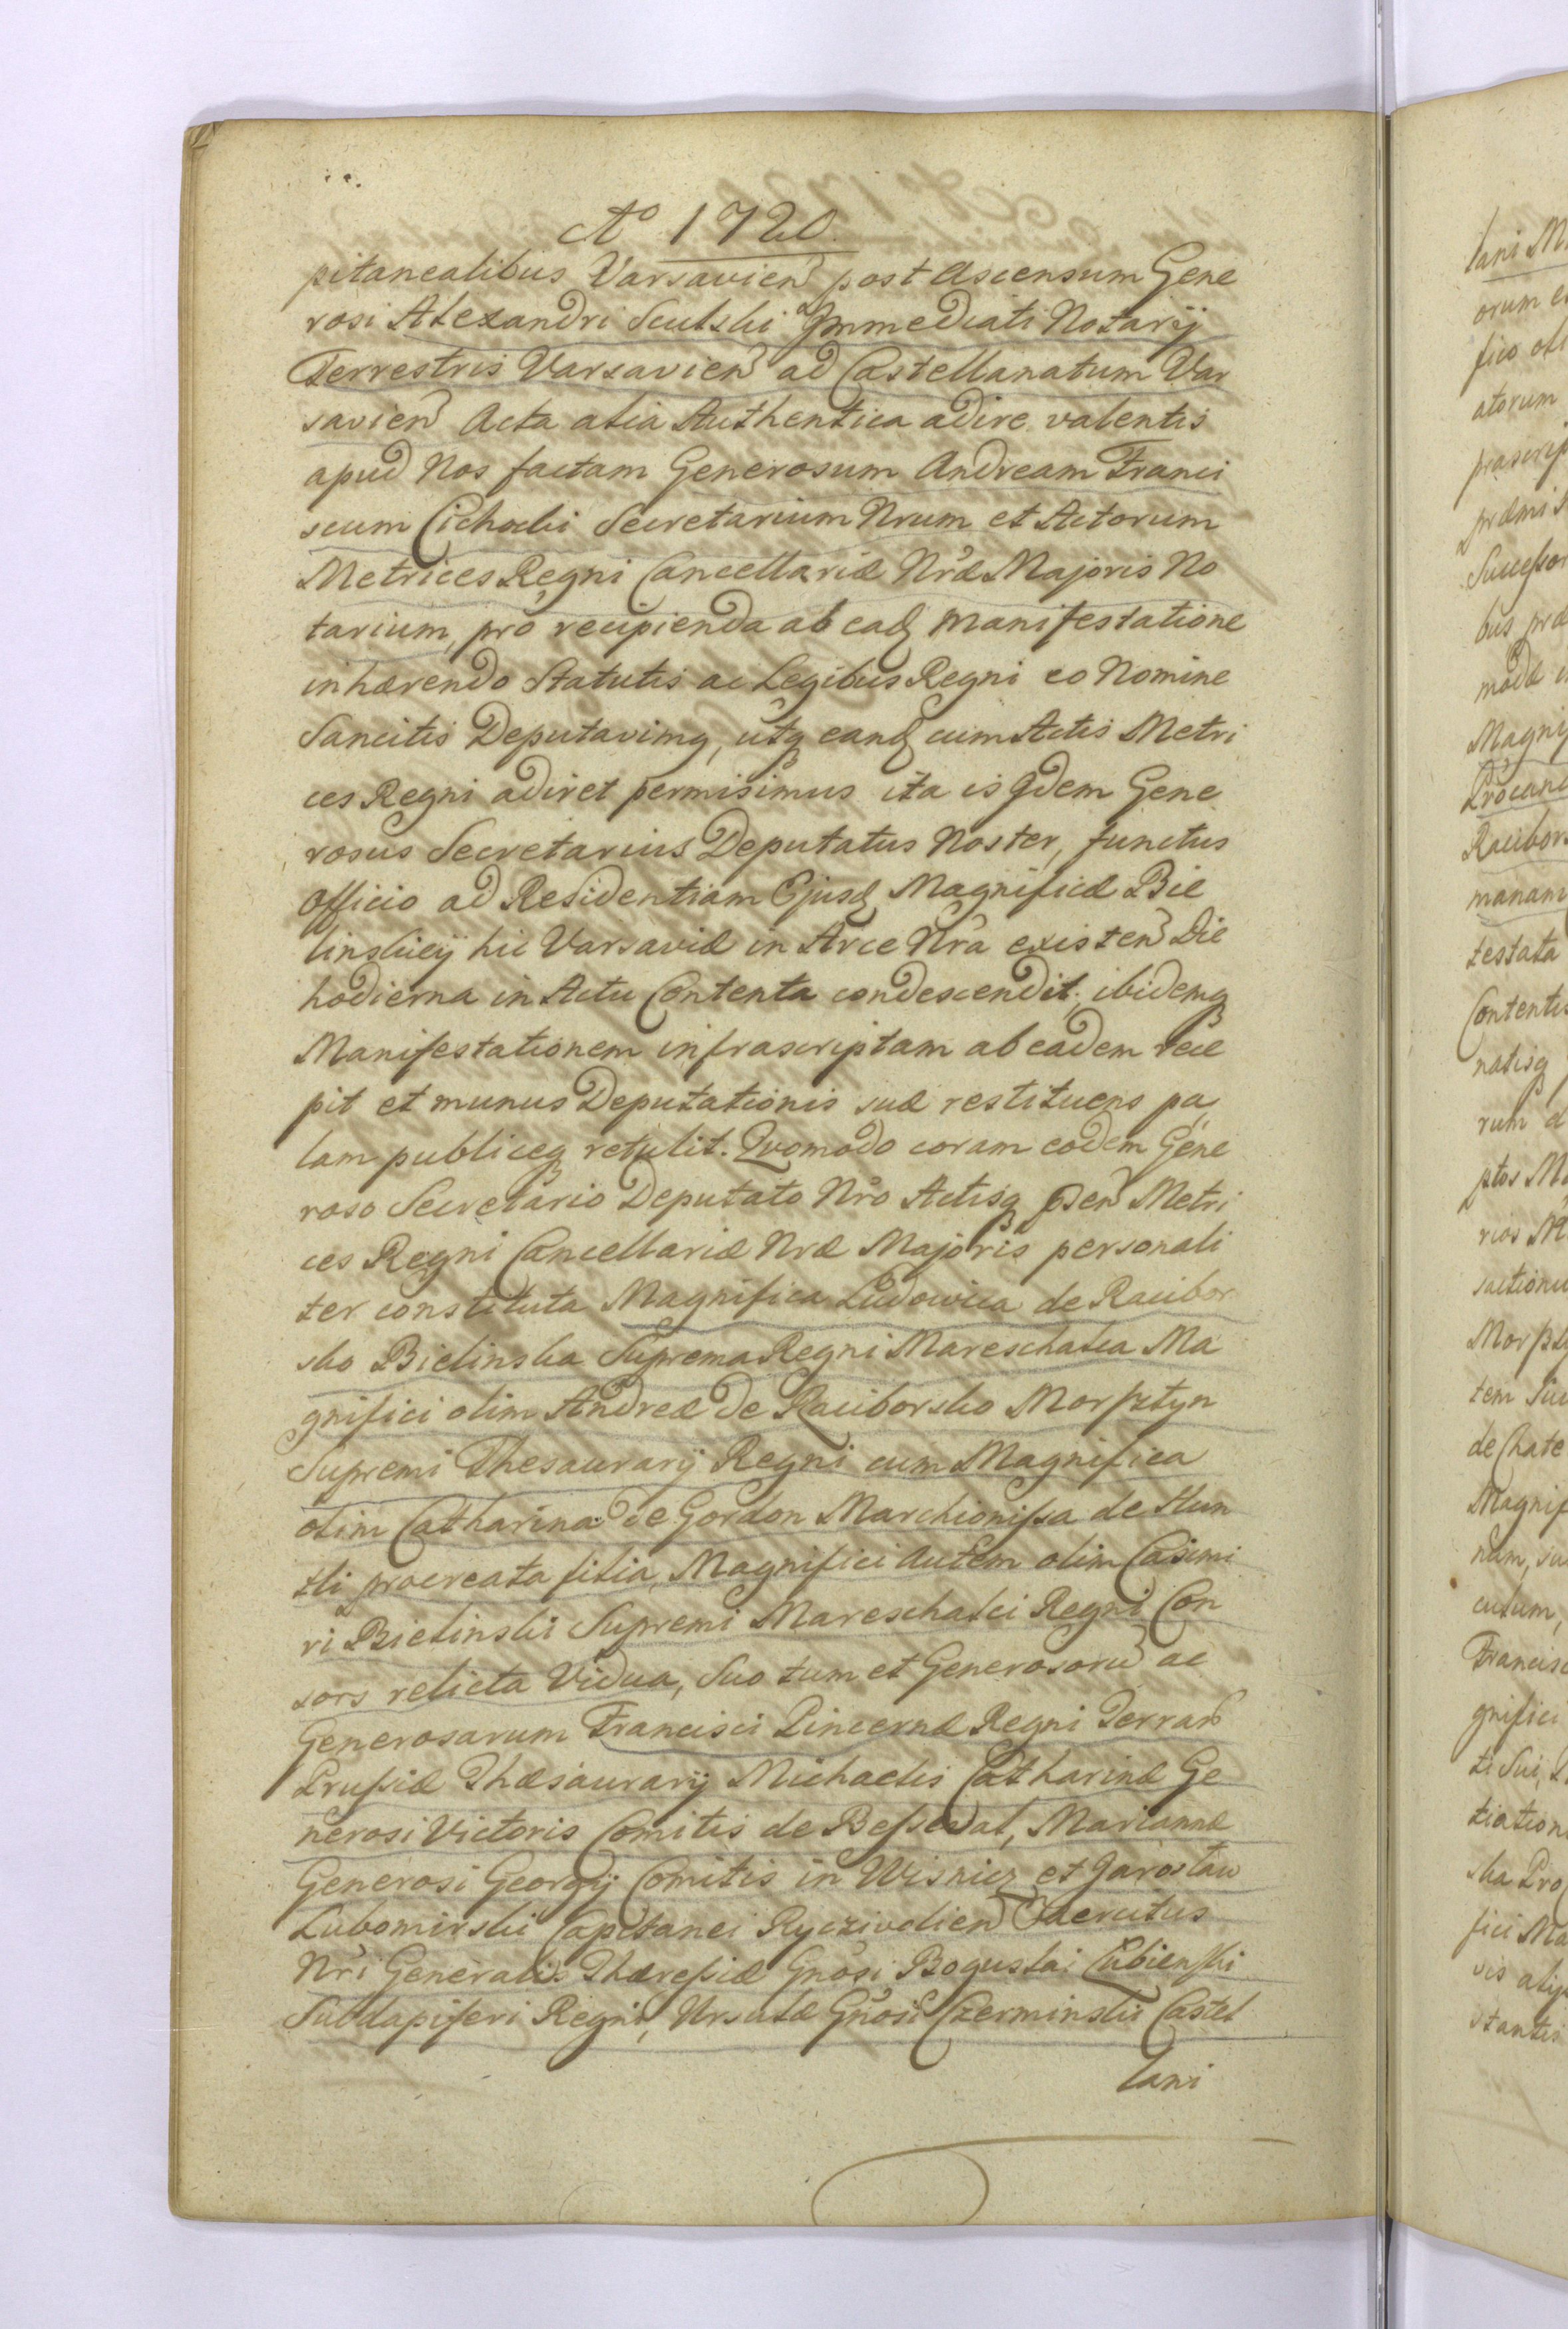 Aº 1720
pitanealibus Varsavien post Ascensum Gene
rosi Alexandri Sculski Immediati Notarij
Terrestris Varsavien ad Castellanatum Var
savien Acta alia Authentica adire valentis
apud Nos factam Generosum Andream Franci
scum Cichocki Secretarium Nrum et Actorum
Metrices Regni Cancellariæ Nræ Majoris No
tarium, pro recipienda ab eadq manifestatione
inhærendo Statutis ac Legibus Regni eo Nomine
Sancitis Deputavimq, utq eandq cum Actis Metri
ces Regni adiret permisimus ita is qdem Gene
rosus Secretarius Deputatus Noster, functus
Officio ad Residentiam Ejusdq Magnificæ Bie
linskiey hic Varsaviæ in Arce Nra existen Die
hodierna in Actu Contenta condescendit, ibidemq
Manifestationem infrascriptam ab eadem rece
pit et munus Deputationis suæ restituens pa
lam publiceq retulit. Quomodo coram eodem Gene
roso Secretario Deputato Nro Actisq psen Metri
ces Regni Cancellariæ Nræ Majoris personali
ter constituta Magnifica Ludowica de Racibor
sko Bielinska Suprema Regni Mareschalca Ma
gnifici olim Andreæ de Raciborsko Morsztyn
Supremi Thesaurarij Regni cum Magnifica
olim Catharina de Gordon Marchionissa de Hun
tli procreata filia, Magnifici autem olim Casimi
ri Bielinski Supremi Mareschalci Regni Con
sors relicta Vidua, Suo tum et Generosorũ ac
Generosarum Francisci Pincernæ Regni Terrar
Prussiæ Thæsaurarij Michaelis Catharinæ Ge
nerosi Victoris Comitis de Besseval, Mariannæ
Generosi Georgij Comitis in Wisnicz et Jaroslaw
Lubomirski Capitanei Ryczivolien Exercitus
Nri Generalis Thæresiæ Gnosi Boguslai Lubienski
Subdapiferi Regni, Ursulæ Gnosi Czerminski Castel
lani
lani M
orum e
fico oli
atorum
præscrip
præmis
Successor
bus præ
modæ
Magnif
Procanc
Racibors
manam
testata
Contentis
natisq
rum a
ptos M
rios M
sactioni
Morszty
tem Su
de Chate
Magnif
nam, su
cutum,
Francisc
gnifici
ti Sui,
tiation
ska Pro
fici Ma
vis aliq
stantis